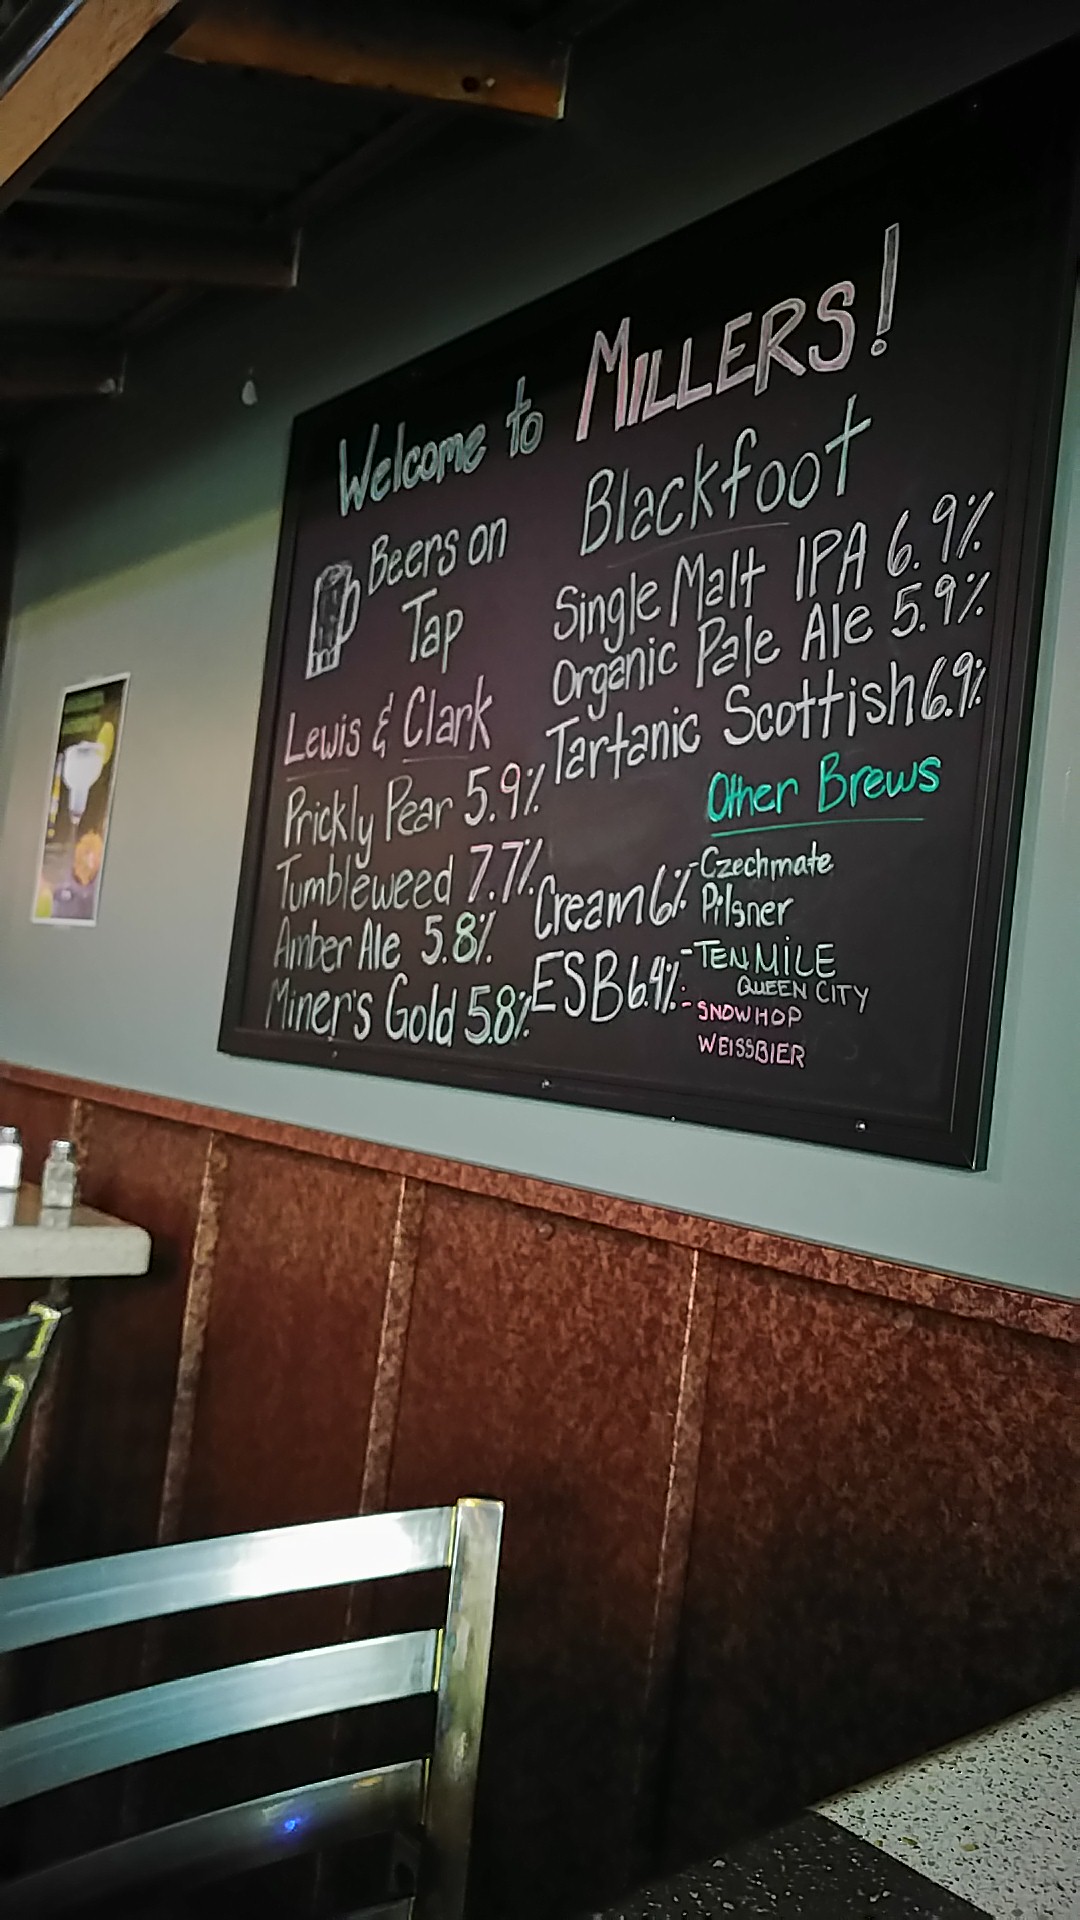 Welcome to MILLERS!
Beers on
Tap
Lewis & Clark
Prickly Pear 5.9%
Tumbleweed 7.7%
Amber Ale 5.8%
Miner's Gold 5.8%
Cream 6%
ESB 6.4%
Blackfoot
Single Malt IPA 6.9%
Organic Pale Ale 5.9%
Tartanic Scottish 6.9%
Other Brews
- Czechmate
Pilsner
- TEN MILE
QUEEN CITY
- SNOWHOP
WEISSBIER